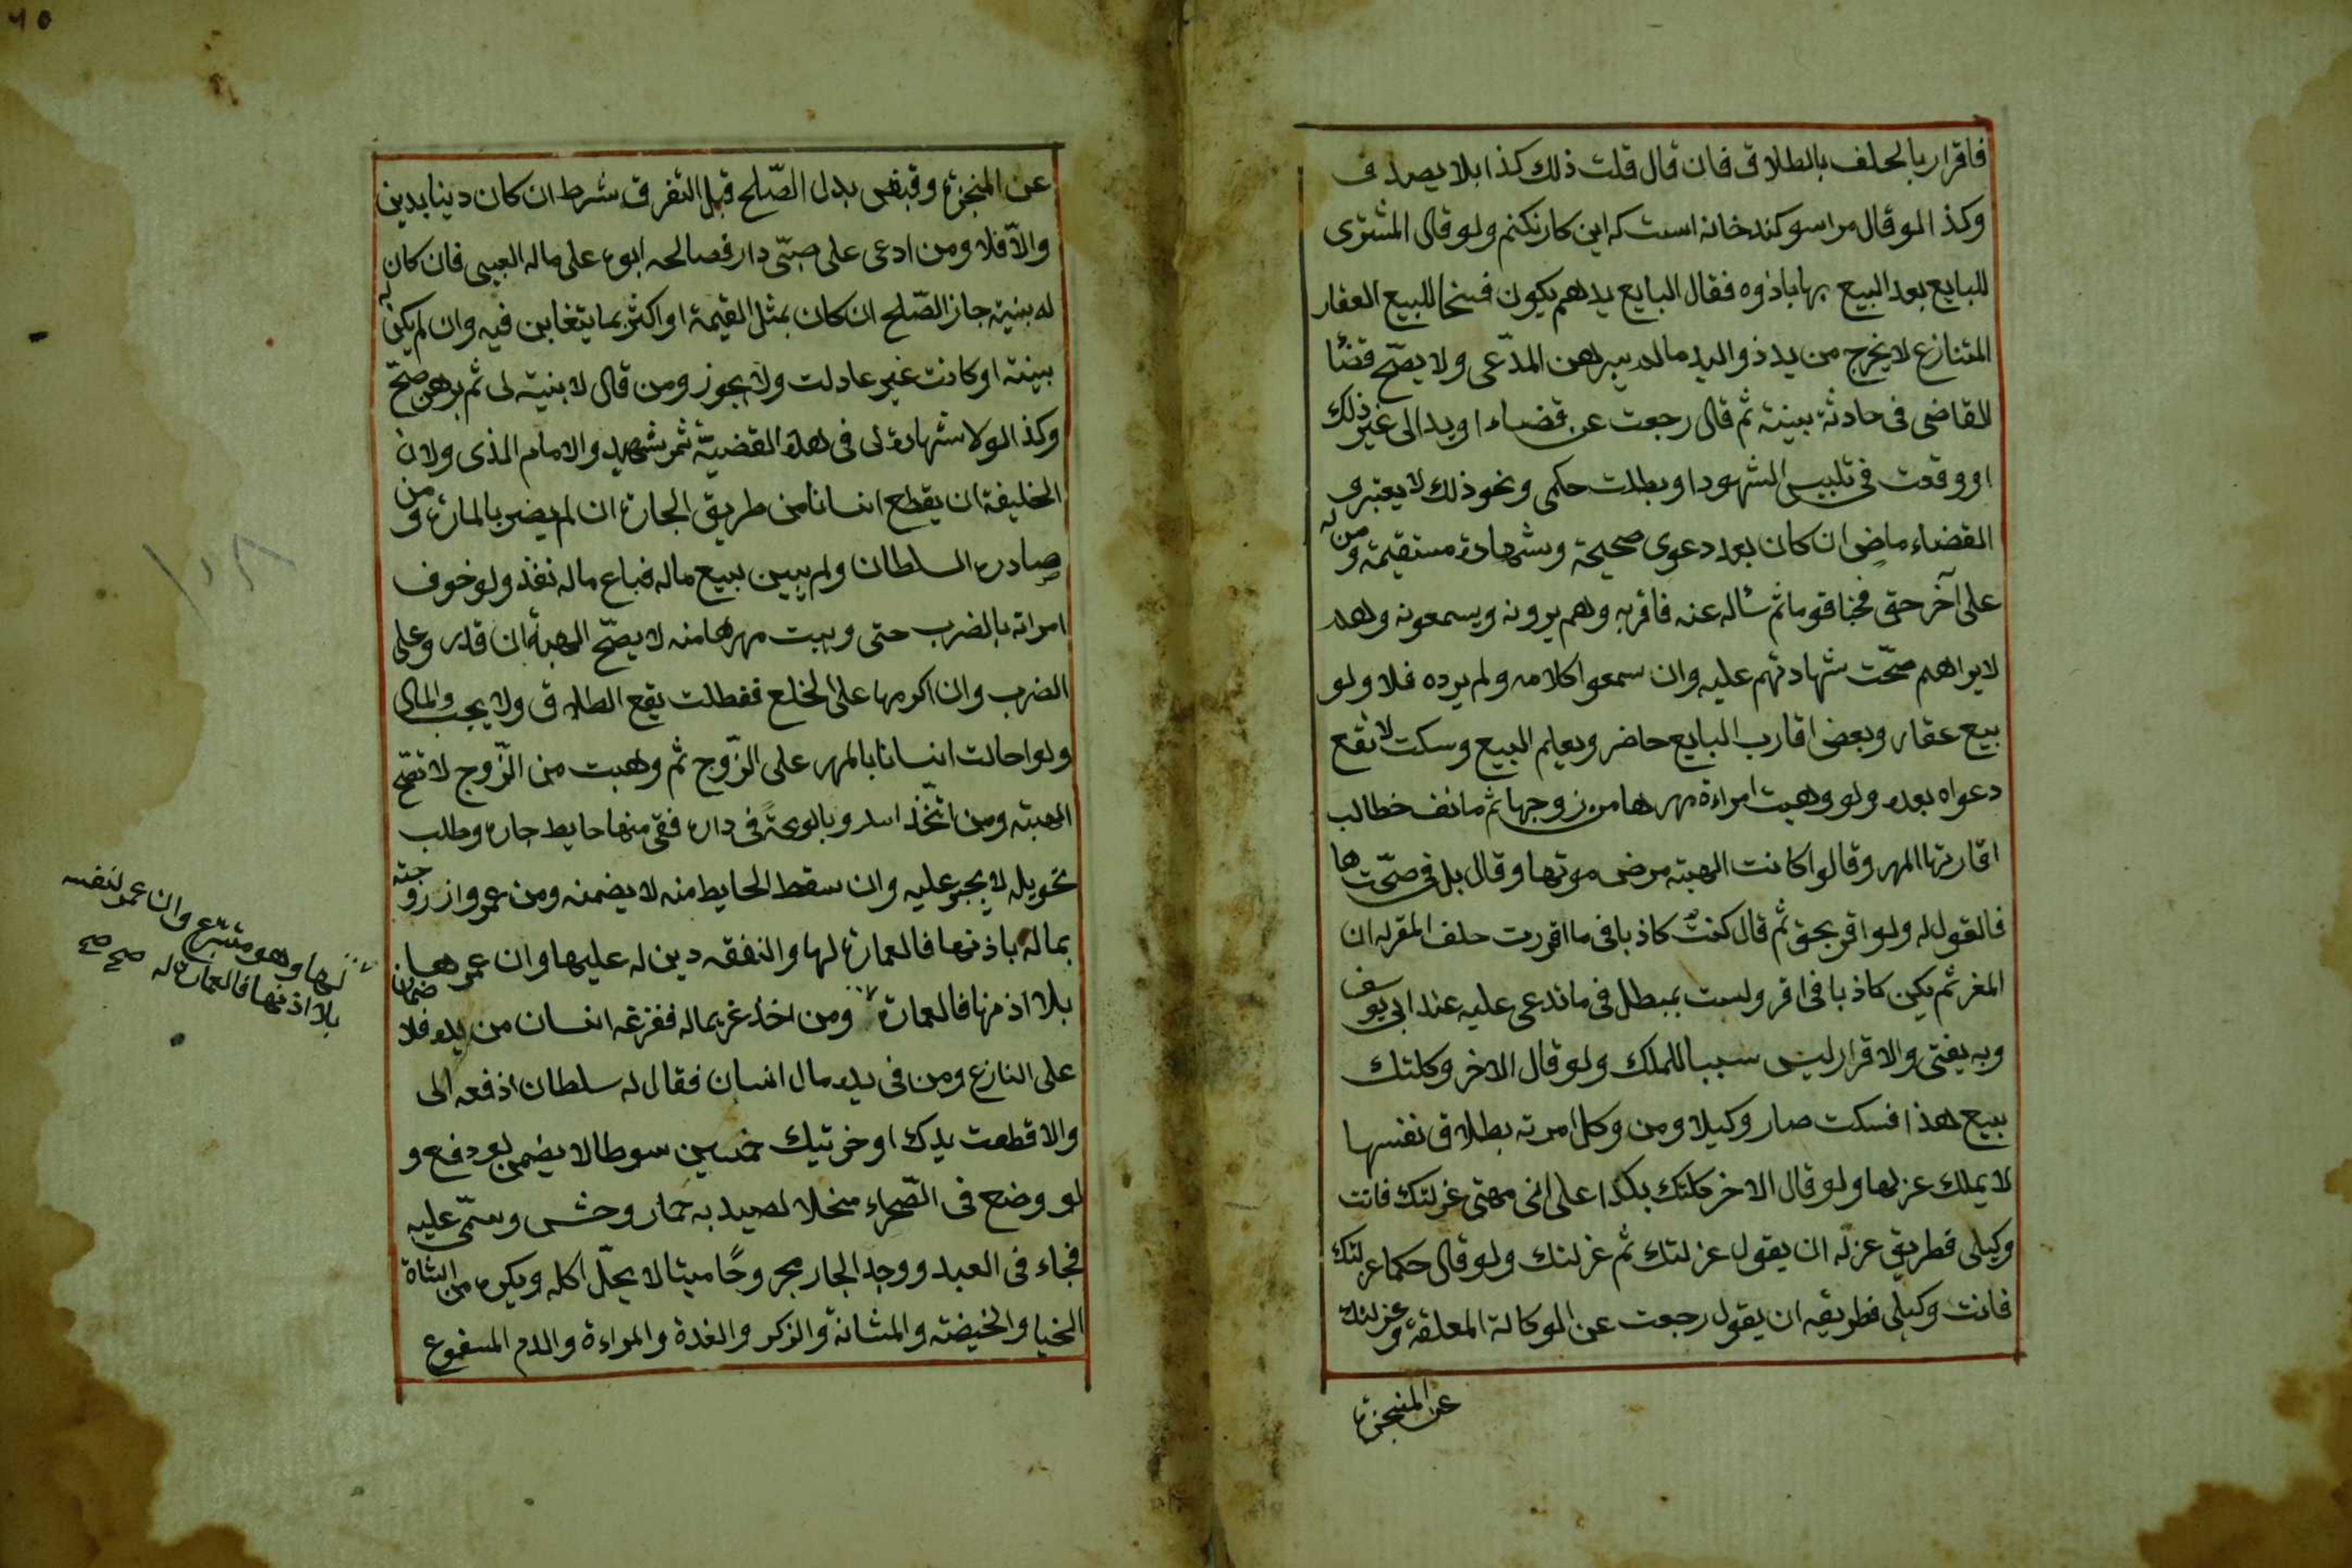 فاقرار بالحلف بالطلاق فان قال قلت ذلك كذابلا يصدق
وكذا لو قال مراسوكند خانه است كه اين كار نكنم ولو قال المشترى
للبايع بعد البيع بهاباذوه فقال البايع يدهم يكون فسخا للبيع العقار
المتنازع لا يخرج من يد ذواليد مالم يبرهن المدّعى ولا يصحّ قضا
للقاضى فى حادثة ببينة ثم قال رجعت عن قضاء او بدالى غير ذلك
او وقعت فى تلبيس الشهود او بطلت حكمى ونحو ذلك لا يعتبر و
القضاء ماض ان كان بعد دعوى صحيحة وشهادة مستقيمة ومن له
على آخر حق فخباقوما ثم سأله عنه فاقر به وهم يرونه ويسمعونه وهو
لا يراهم صحّت شهادتهم عليه وان سمعوا كلامه ولم يرده فلا ولو
بيع عقار وبعض اقارب البايع حاضر ويعلم البيع وسكت لا تقع
دعواه بعده ولو وهبت امراءة مهرها من زوجها ثم مانف خطالب
اقاربها المهر وقالوا كانت الهبته مرض موتها وقال بل فى صحّتها
فالقول له ولو اقر بحق ثم قال كنت كاذبا فى ما اقررت حلف المقر له ان
المغر ثم يكن كاذبا فى اقر ولست بمبطل فى ما تدعى عليه عند ابى يوسف
وبه يفتى والاقرار ليس سببا للملك ولو قال الاخر وكلتك
ببيع هذا فسكت صار وكيلا ومن وكل امرته بطلاق نفسها
لا يملك عزلها ولو قال الاخر وكلتك بكذا على انى مهتى عزلتك فانت
وكيلى فطريق عزله ان يقول عزلتك ثم عزلتك ولو قال حكما عزلتك
فانت وكيلى فطريقه ان يقول رجعت عن الوكالة المعلقة وعزلتك
عن المنجزه
عن المنجزه وقبض بدل الصّلح قبل التفرق شرط ان كان دينا بدين
والاّ فلا ومن ادعى على صبّى دار فصالحه ابوه على ماله العبى فان كان
له بنيته جاز الصّلح ان كان بمثل القيمة او اكثر بما يتغابن فيه وان لم يكن له
بينته او كانت غير عادلت ولا يجوز ومن قال لا بنيته لى ثم برهن صحّ
وكذا لو لا شهادة لى فى هذه القضيّة ثم شهيد والامام الذى ولان
الخليفة ان يقطع انسانا من طريق الجارة ان لم يضر بالمارة ومن
صادره السلطان ولم يبين ببيع ماله فباع ماله نفذ ولو خوف
امراته بالضرب حتى وبيت مهرها منه لا يصحّ الهبة ان قدر وعلى
الضرب وان اكرمها على الخلع ففطلت يقع الطلاق ولا يجب والمال
ولو احالت انسانا بالمهر على الزّوج ثم وهبت من الزّوج لا تصحّ
الهبته ومن اتّخذ اسدو بالوعة فى داره فقى منها حايط جاره وطلب
تحويله لا يجبر عليه وان سقط الحايط منه لا يضمنه ومن عمر واز زوجته
بماله باذنها فالعمارة لها والنفقه دين له عليها وان عمرها
بلا اذنها فالعمارة ومن اخذ غريماله ففزعه انسان من يده فلا ضمان
على النازع ومن فى يده مال انسان فقال له سلطان اذفعه الى
والا قطعت يدك او خرتيك خمسين سوطا لا يضمن لو دفع و
لو وضع فى الصّحراء منحلا لصيد به حمار وخش وسمّى عليه
فجاء فى العبد ووجد الجار مجروحًا ميتا لا يحلّ اكله ويكره من الشاة
الخيا والخيضته والمثانة والزكر والغدة والمراءة والدم المسفوع
لها وهو متبرّع وان عمر لنفسه
بلا اذنها فالعمارة له صح صح